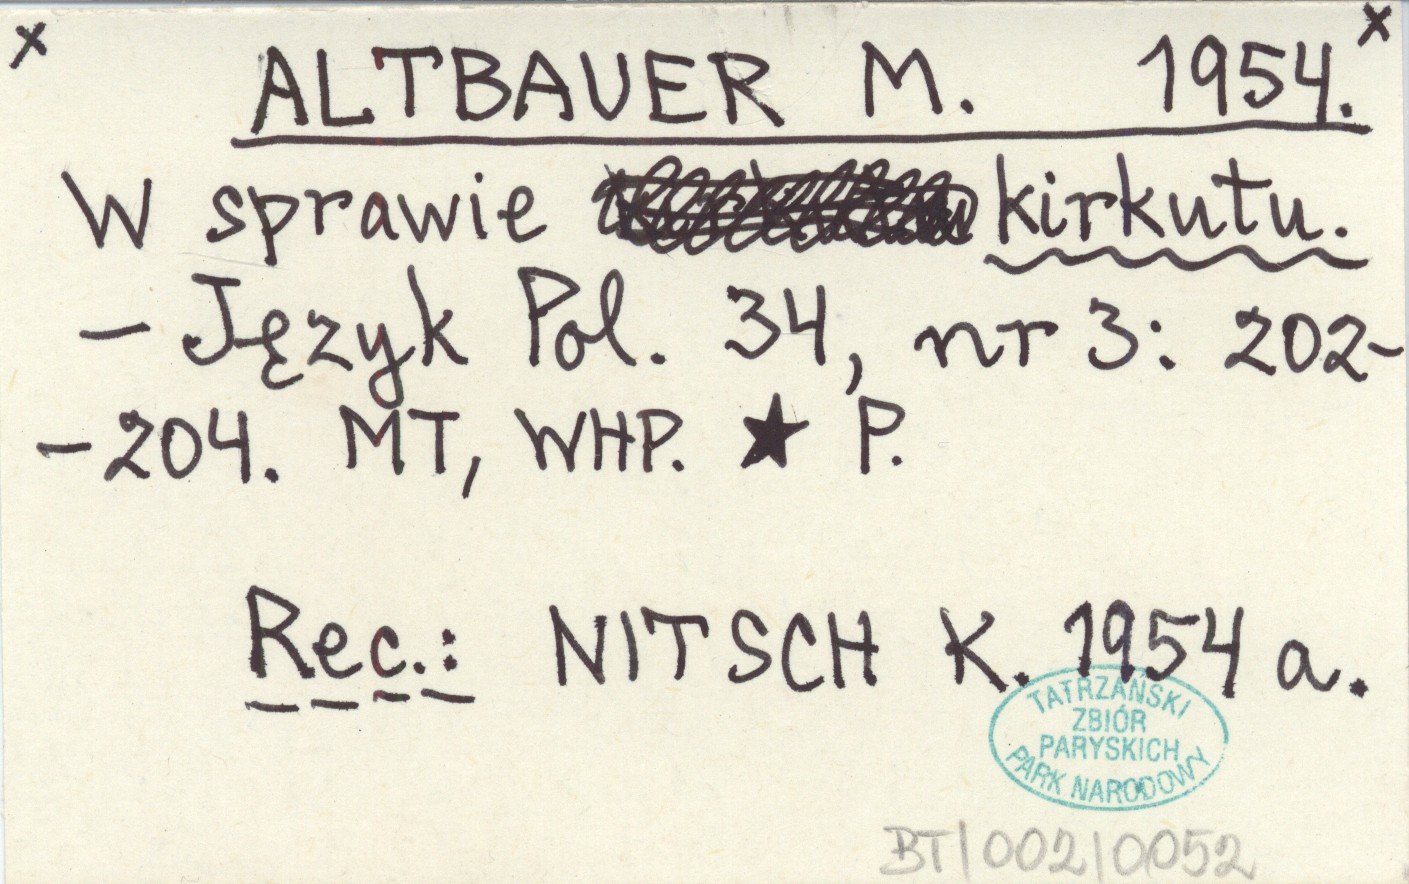 x x
ALTBAUER M. 1954.
W sprawie kirkutu.
- Język Pol. 34, nr 3: 202-
-204. MT, WHP. ★ P.
Rec.: NITSCH K. 1954 a.
TATRZAŃSKI
ZBIÓR
PARYSKICH
PARK NARODOWY
BT/002/0052